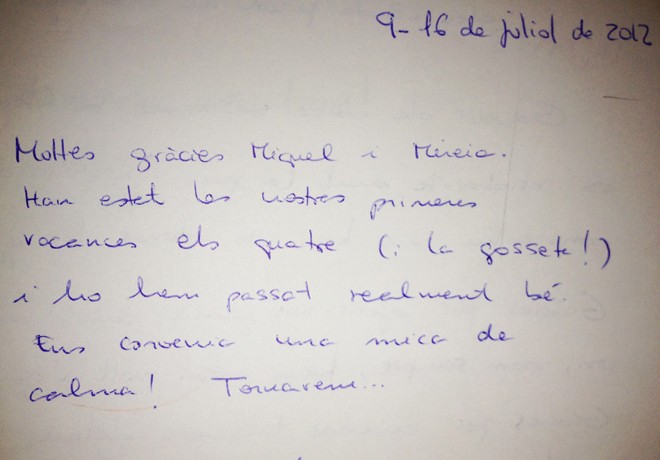 9-16 de juliol de 2012
Moltes gràcies Miquel i Mireia.
Han estat les nostres primeres
vacances els quatre (i la gosseta!)
i ho hem passat realment bé.
Ens convenia una mica de
calma! Tornarem...